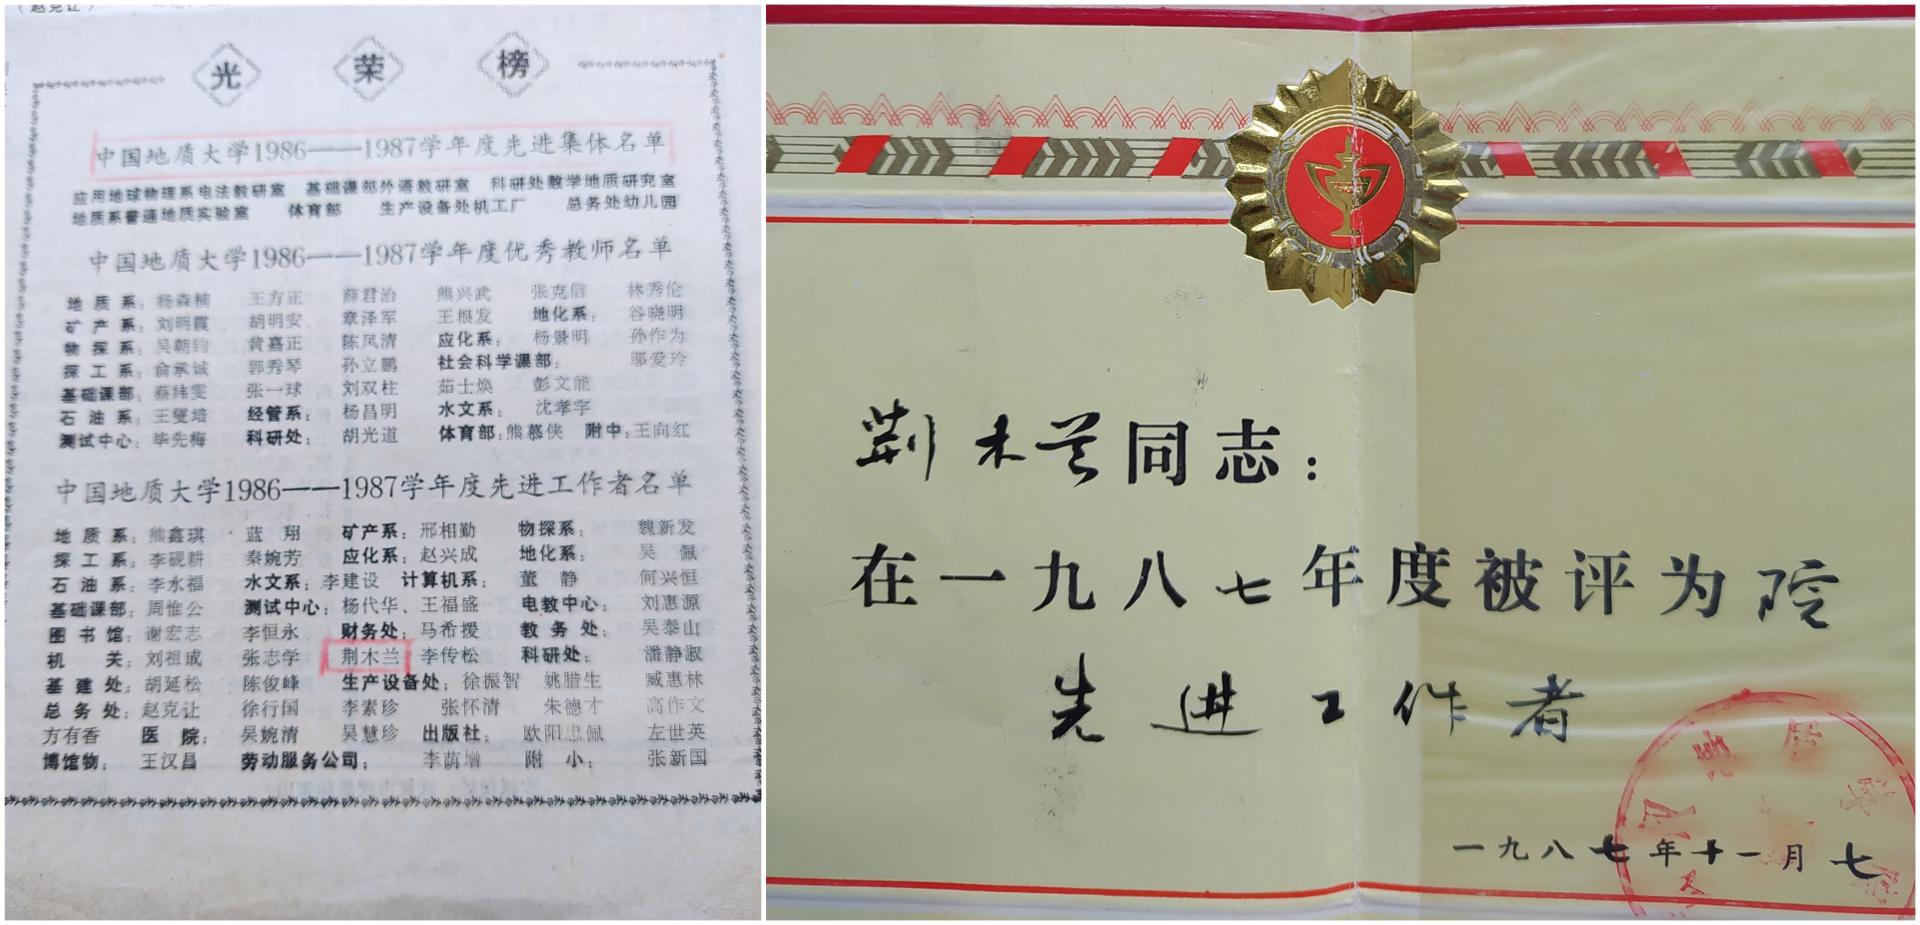 光荣榜
中国地质大学1986——1987学年度先进集体名单
应用地球物理系电法教研室 基础课部外语教研室 科研处数学地质研究室
地质系普通地质实验室 体育部 生产设备处机工厂 总务处幼儿园
中国地质大学1986——1987学年度优秀教师名单
地质系：杨森楠 王方正 薛君治 熊兴武 张克信 林秀伦
矿产系：刘明霞 胡明安 章泽军 王根发 地化系：谷晓明
物探系：吴朝钧 黄嘉正 陈凤清 应化系：杨景明 孙作为
探工系：俞承诚 郭秀琴 孙立鹏 社会科学课部：邬爱玲
基础课部：蔡纬雯 张一球 刘双柱 茹士焕 彭文能
石油系：王燮培 经管系：杨昌明 水文系：沈孝宇
测试中心：毕先梅 科研处：胡光道 体育部：熊慕侠 附中：王向红
中国地质大学1986——1987学年度先进工作者名单
地质系：熊鑫琪 蓝翔 矿产系：邢相勤 物探系：魏新发
探工系：李砚耕 秦婉芳 应化系：赵兴成 地化系：吴佩
石油系：李永福 水文系：李建设 计算机系：董静 何兴恒
基础课部：周惟公 测试中心：杨代华、王福盛 电教中心：刘惠源
图书馆：谢宏志 李恒永 财务处：马希援 教务处：吴泰山
机关：刘祖成 张志学 荆木兰 李传松 科研处：潘静淑
基建处：胡延松 陈俊峰 生产设备处：徐振智 姚腊生 臧惠林
总务处：赵克让 徐行国 李素珍 张怀清 朱德才 高作文
方有香 医院：吴婉清 吴慧珍 出版社：欧阳忠佩 左世英
博馆物：王汉昌 劳动服务公司：李荫增 附小：张新国
荆木兰同志：
在一九八七年度被评为院
先进工作者
一九八七年十一月七